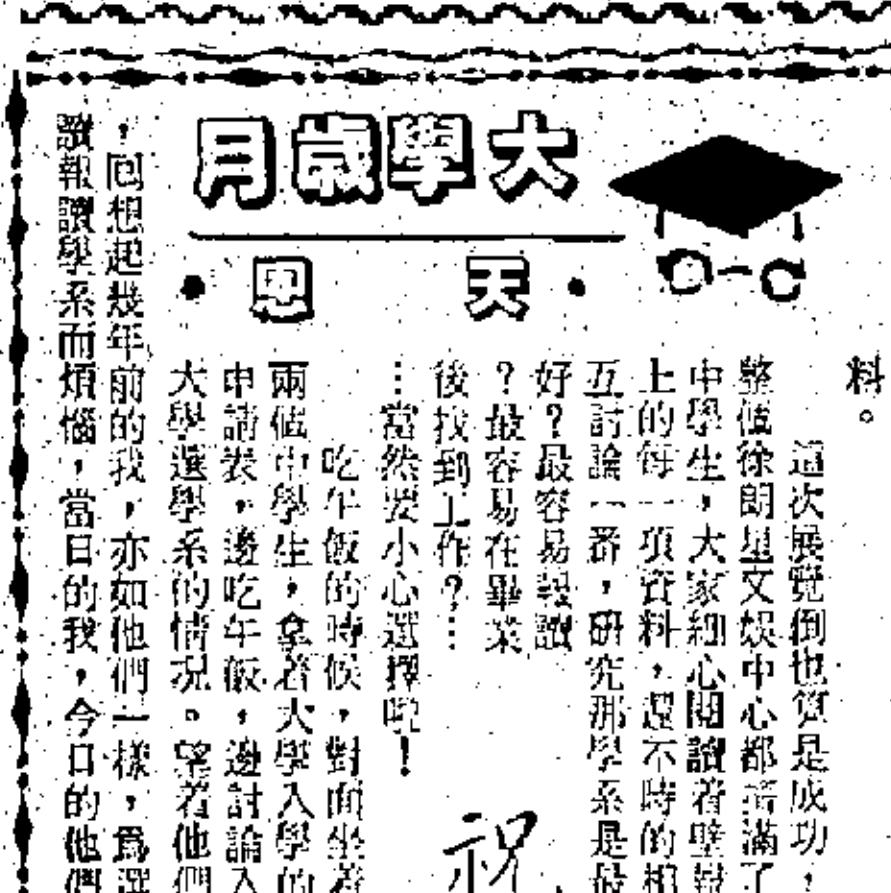 大學歲月
·天恩·
料。
這次展覽倒也算是成功,
整個徐朗星文娛中心都擠滿了
中學生,大家細心閱讀着壁報
上的每一項資料,還不時的相
互討論一番,研究那學系是最
好?最容易報讀
?最容易在畢業
後找到工作?…
…當然要小心選擇呢!
祝
吃午飯的時候,對面坐着
兩個中學生,拿着大學入學的
申請表,邊吃午飯,邊討論入
大學選學系的情況。望着他們
,回想起幾年前的我,亦如他們一樣,爲選
讀報讀學系而煩惱,當日的我,今日的他們